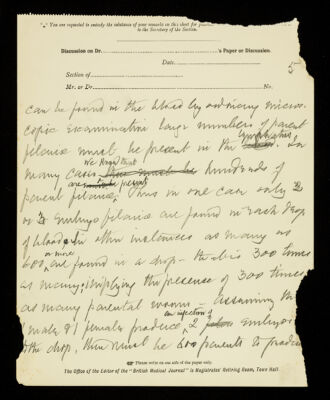 "„" You are requested to embody the substance of your remarks on this sheet for
to the Secretary of the Section.
Discussion on Dr. 's Paper or Discussion.
Date
Section of
Mr. or Dr. No.
5
can be found in the blood by ordinary micros-
copic examination large numbers of parent
filariae must be present in the lymphatics. In
many cases we know that there must be hundreds of
parent filariae are present. Thus in one case only 2
or 3 embryo filariae are found in each drop
of blood, in other instances as many as
600 or more are found in a drop – that is 300 times
as many, implying the presence of 300 times
as many parental worms – Assuming that
1 male & 1 female produce an infection of 2 embryos
to the drop, there must be 600 parents to produce
Please write on one side of the paper only.
The Office of the Editor of the "British Medical Journal" is Magistrates' Retiring Room, Town Hall.